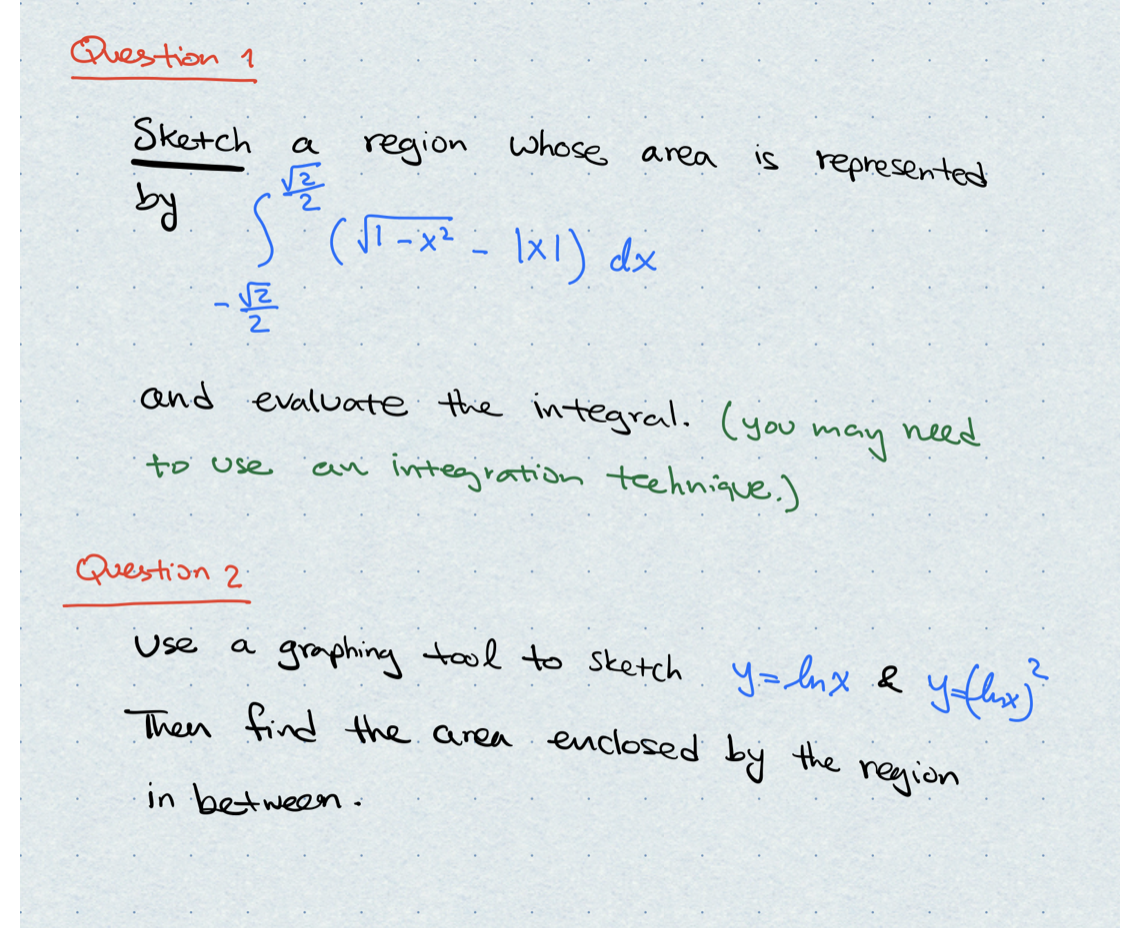 Question 1
Sketch a region whose area is represented
by ∫_{-√2/2}^{√2/2} (√(1-x²) - |x|) dx
and evaluate the integral. (you may need
to use an integration technique.)
Question 2
Use a graphing tool to sketch y=lnx & y=(lnx)²
Then find the area enclosed by the region
in between.